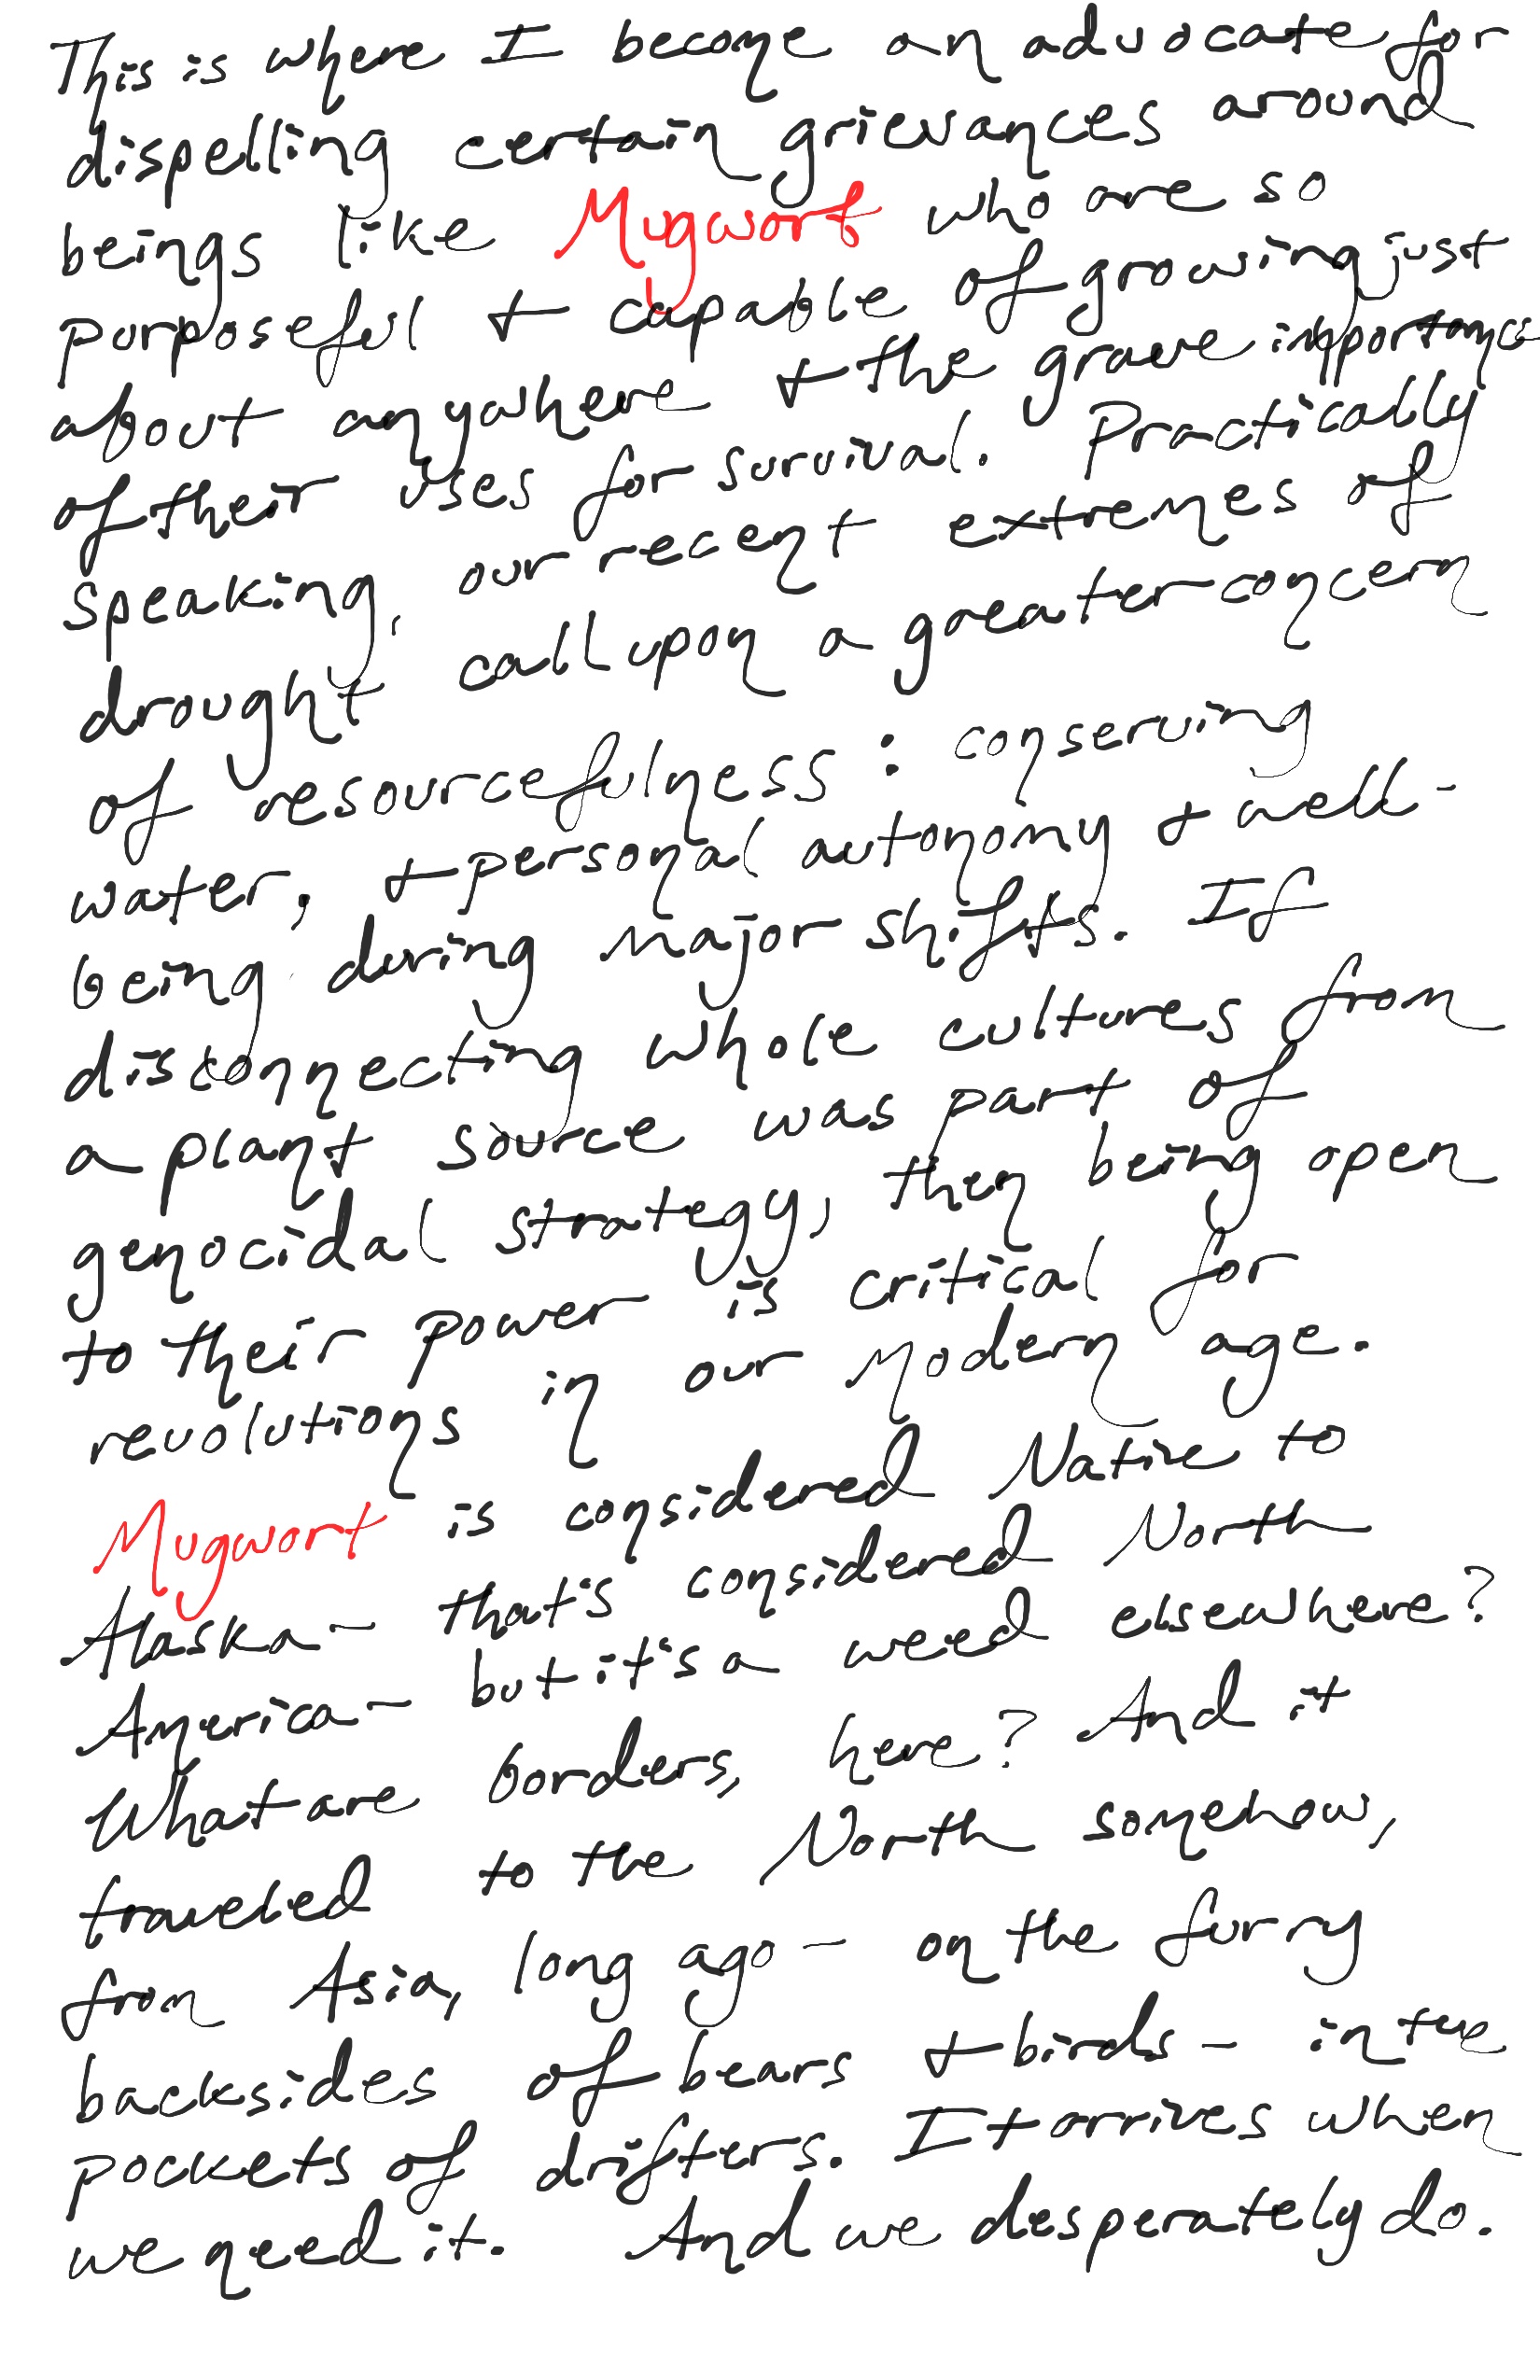 This is where I become an advocate for
dispelling certain grievances around
beings like Mugwort who are so
purposeful + capable of growing just
about anywhere + the grave importance
of their uses for survival. Practically
speaking, our recent extremes of
drought call upon a greater concern
of resourcefulness: conserving
water, + personal autonomy + well-
being during major shifts. If
disconnecting whole cultures from
a plant source was part of
genocidal strategy, then being open
to their power is critical for
revolutions in our modern age.
Mugwort is considered Native to
Alaska - that's considered North
America - but it's a weed elsewhere?
What are borders, here? And it
traveled to the North somehow,
from Asia, long ago - on the furry
backsides of bears + birds - in the
pockets of drifters. It arrives when
we need it. And we desperately do.